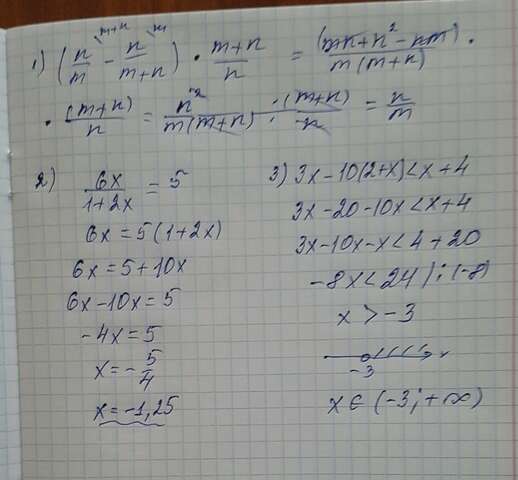 1) (n/m - n/(m+n)) · (m+n)/n = (mn+n² - nm)/(m(m+n)) ·
· (m+n)/n = n²/(m(m+n)) · (m+n)/n = n/m
2) 6x/(1+2x) = 5
6x = 5(1+2x)
6x = 5+10x
6x-10x = 5
-4x = 5
x = -5/4
x = -1,25
3) 3x-10(2+x)<x+4
3x-20-10x<x+4
3x-10x-x<4+20
-8x<24 ) : (-8)
x > -3
-3 x
x ∈ (-3; +∞)